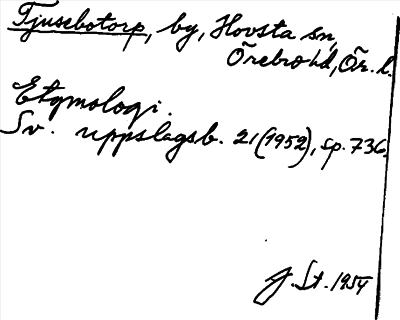 Tjusebotorp, by, Hovsta sn,
Örebro hd, Ör. l.
Etymologi.
Sv. uppslagsb. 21 (1952), sp. 736.
J. St. 1954